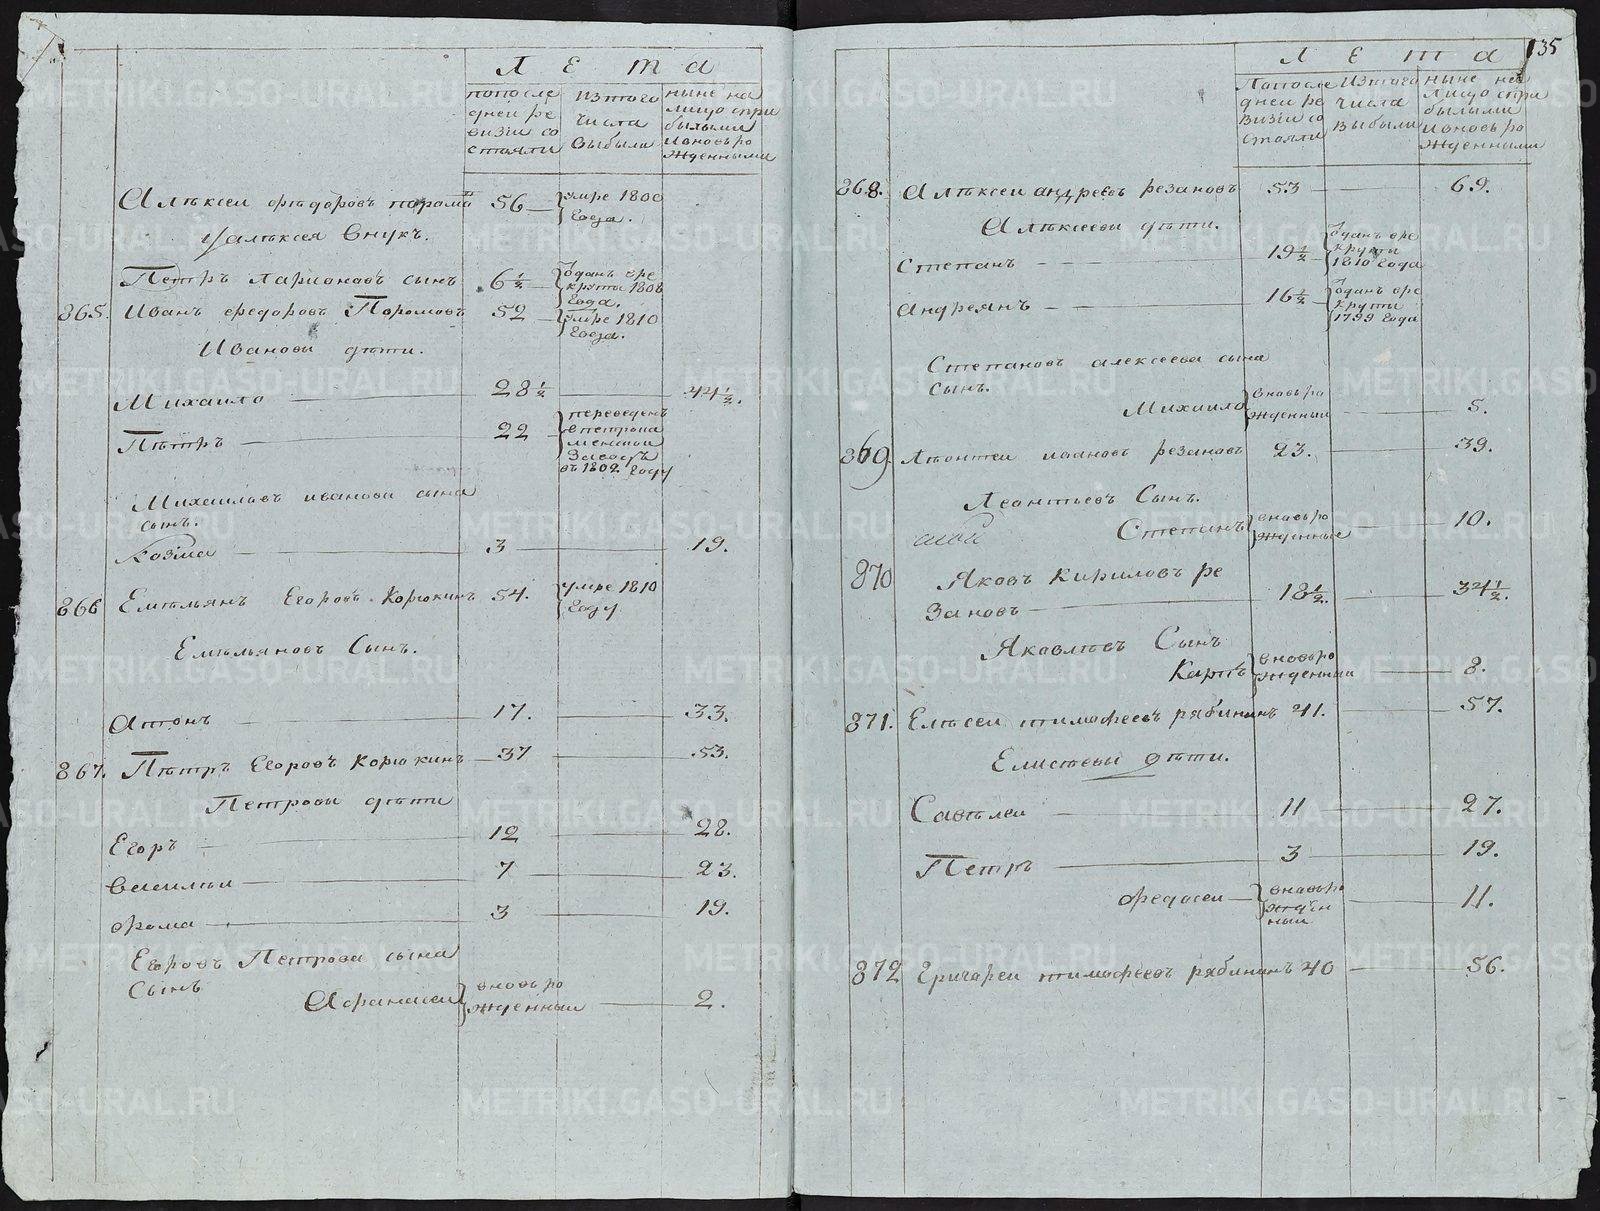 Л Е т а
попосле
дней ре
визiи со
стояли
Изтого
числа
выбыли
ныне на
лицо спри
былыми
ивновь ро
жденными
Алѣксеи фѣдоровъ
56
умре 1800
Года.
Уалѣксея внукъ.
Петръ Ларионовъ сынъ
6 1/2
Оданъ вре
круты 1808
Года.
865.
Иванъ федоровъ Поромовъ
52
умре 1810
Года.
Ивановы дѣти.
Михаило
28 1/2
44 1/2.
Пѣтръ
22
переведенъ
впетрока
менской
Заводъ
въ 1802 Году
Михаиловъ иванова сына
сынъ.
Козма
3
19.
866
Емѣльянъ Егоровъ Корюкинъ
54.
умре 1810
Году
Емѣльяновъ Сынъ.
Антонъ
17.
33.
867.
Пѣтръ Егоровъ Корюкинъ
37
53.
Петровы дѣти
Егоръ
12
28.
Василѣи
7
23.
фома
3
19.
Егоровъ Петрова сына
Сынъ
Афанасеи
вновь ро
жденныи
2.
135
Л Е т а
Попосле
дней ре
визiи со
стояли
Изтого
числа
выбыли
ныне на
лицо спри
былыми
ивновь ро
жденными
868.
Алѣксеи андреевъ резановъ
53
69.
Алѣксеевы дѣти.
Степанъ
19 1/2
Одань вре
круты
1810 Года
Андреянъ
16 1/2
Одань вре
круты
1799 Года
Степановъ алексеева сына
Сынъ.
Михаило
вновь ро
жденныи
5.
869.
Лѣонтеи ивановъ резановъ
23.
39.
Леонтьевъ Сынъ.
Степанъ
вновь ро
жденные
10.
870
Яковъ Кириловъ ре
Зановъ
18 1/2.
34 1/2.
Яковлѣвъ Сынъ
Карпъ
вновь ро
жденныи
8.
871.
Елѣсеи тимофеевъ рябининъ
41.
57.
Елисеевы дѣти.
Савѣлеи
11
27.
Петръ
3
19.
федосеи
вновь ро
жден
ныи
11.
872
Григореи тимофеевъ рябининъ
40
56.
METRIKI.GASO-URAL.RU